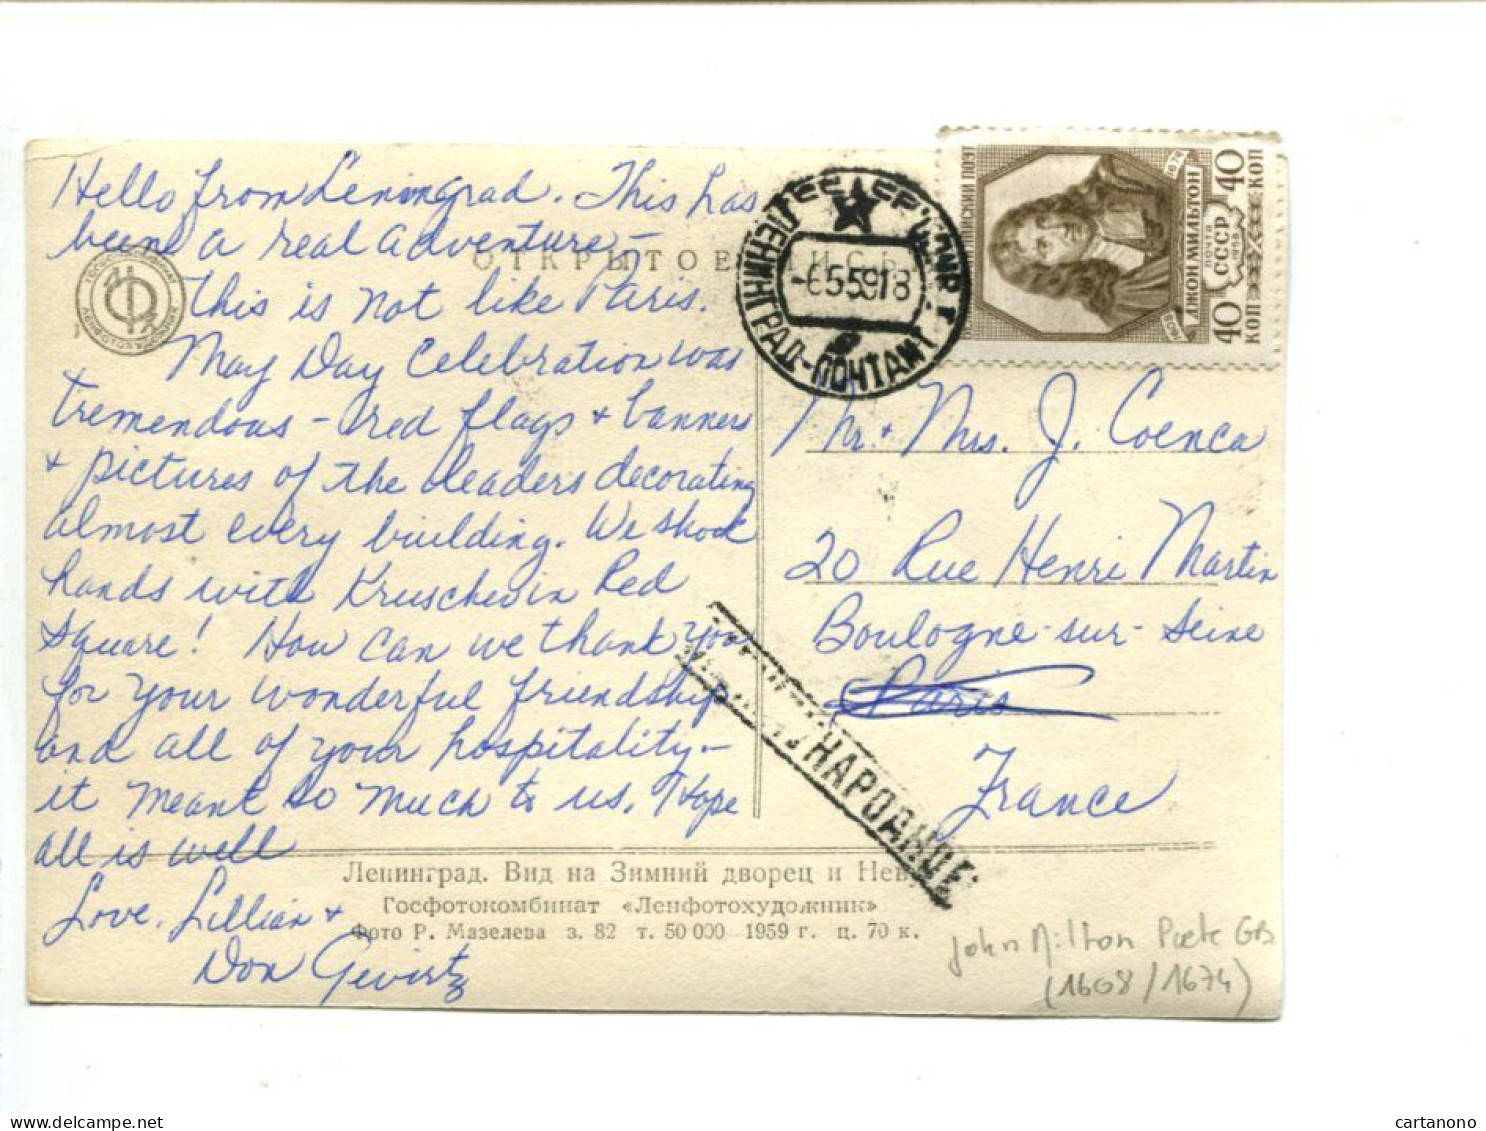 Hello from Leningrad. This has
been a real adventure –
this is not like Paris.
May Day Celebration was
tremendous – red flags + banners
+ pictures of the leaders decorating
almost every building. We shook
hands with Kruschev in Red
Square! How can we thank you
for your wonderful friendship
and all of your hospitality –
it meant so much to us. Hope
all is well
Love, Lillian +
Don Gevirtz
ОТКРЫТОЕ
ЛЕНИНГРАД-ПОЧТАМТ
-6.5.59.18
ДЖОН МИЛЬТОН
1608
1674
ПОЧТА
СССР
1958
40 КОП
40 КОП
Mr. + Mrs. J. Coenca
20 Rue Henri Martin
Boulogne-sur-Seine
Paris
France
НАРОДНОЕ
Ленинград. Вид на Зимний дворец и Неву
Госфотокомбинат «Ленфотохудожник»
Фото Р. Мазелева з. 82 т. 50 000 1959 г. ц. 70 к.
John Milton Poete GB
(1608/1674)
cartanono